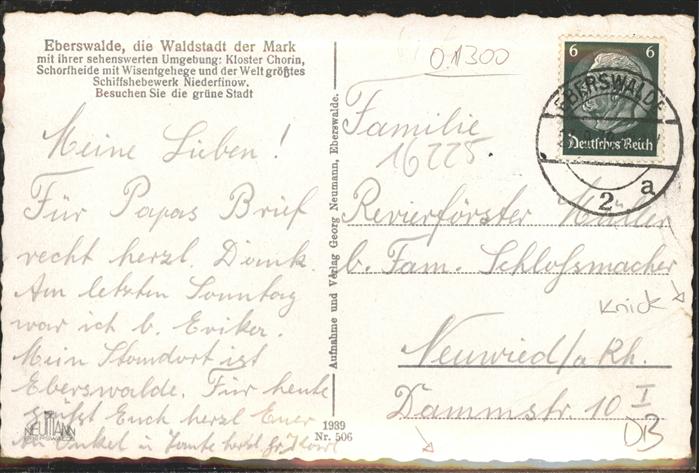 Eberswalde, die Waldstadt der Mark
mit ihrer sehenswerten Umgebung: Kloster Chorin,
Schorfheide mit Wisentgehege und der Welt größtes
Schiffshebewerk Niederfinow.
Besuchen Sie die grüne Stadt
Meine Lieben!
Für Papas Brief
recht herzl. Dank.
Am letzten Sonntag
war ich b. Erika.
Mein Standort ist
Eberswalde. Für heute
grüßt Euch herzl Euer
An Onkel u Tante herzl. Gr.
NEUMANN
EBERSWALDE
Aufnahme und Verlag Georg Neumann, Eberswalde.
1939
Nr. 506
0.11300
6 6
Deutsches Reich
EBERSWALDE
2 a
Familie
16225
Revierförster Müller
b. Fam. Schloßmacher
Knick
Neuwied/a Rh.
Dammstr. 10 I
DB